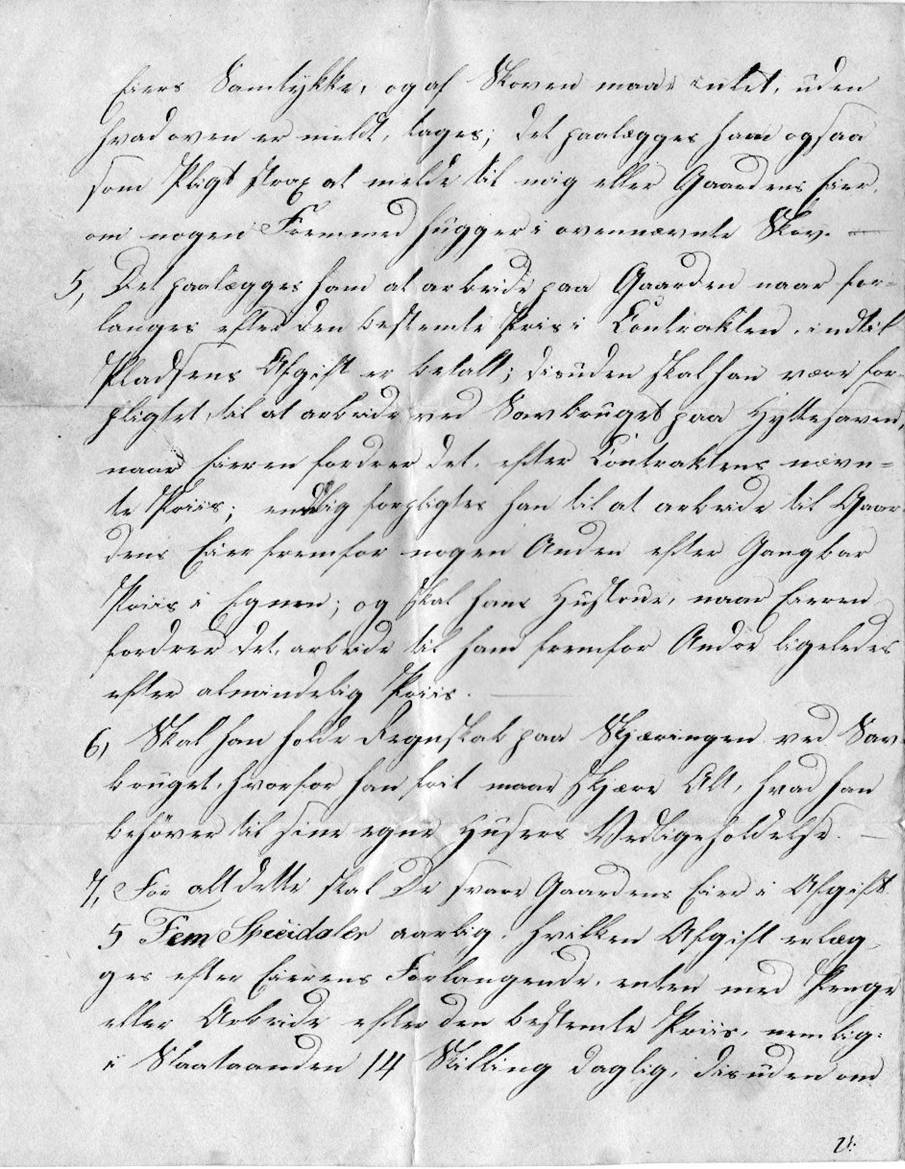 Eiers Samtykke, og af Skoven maae intet, uden
hvad oven er meldt, tages; det paalægges ham ogsaa
som Pligt strax at melde til mig eller Gaardens Eier,
om nogen Fremmed hugger i ovennævnte Skov. —
5, Det paalægges ham at arbeide paa Gaarden naar for-
langes efter den bestemte Priis i Contrakten, indtil
Pladsens Afgift er betalt; desuden skal han være for-
pligtet til at arbeide ved Savbruget paa Hyttehaven,
naar Eieren fordrer det, efter Contraktens nævn=
te Priis; endelig forpligtes han til at arbeide til Gaar-
dens Eier fremfor nogen Anden efter Gangbar
Priis i Egnen; og skal hans Hustrue, naar Eieren
fordrer det, arbeide til ham fremfor Andre ligeledes
efter almindelig Priis. —
6, Skal han holde Regnskab paa Skjæringen ved Sav-
bruget, hvorfor han frit maae skjære Alt, hvad han
behöver til sine egne Husers Vedligeholdelse. —
7, For alt dette skal De svare Gaardens Eier i Afgift
5 Fem Speciedaler aarlig, hvilken Afgift erlæg-
ges efter Eierens Forlangende, enten med Penge
eller Arbeide efter den bestemte Priis, nemlig:
i Slaataanden 14 Skilling daglig, desuden om